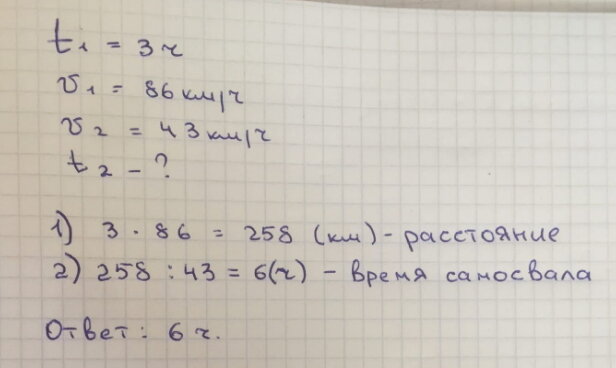 t₁ = 3 ч
v₁ = 86 км/ч
v₂ = 43 км/ч
t₂ - ?
1) 3 · 86 = 258 (км) - расстояние
2) 258 : 43 = 6(ч) - время самосвала
Ответ: 6 ч.